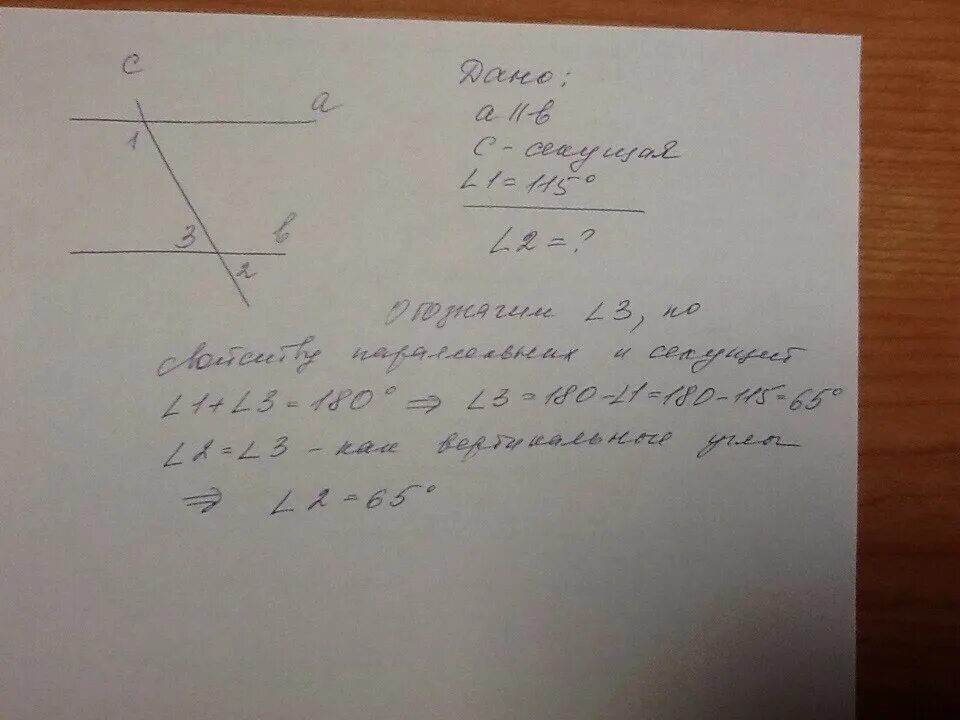 с
а
1
3
в
2
Дано:
а || в
с - секущая
∠1 = 115°
∠2 = ?
Обозначим ∠3, по
свойству параллельных и секущей
∠1 + ∠3 = 180° ⇒ ∠3 = 180 - ∠1 = 180 - 115 = 65°
∠2 = ∠3 - как вертикальные углы
⇒ ∠2 = 65°